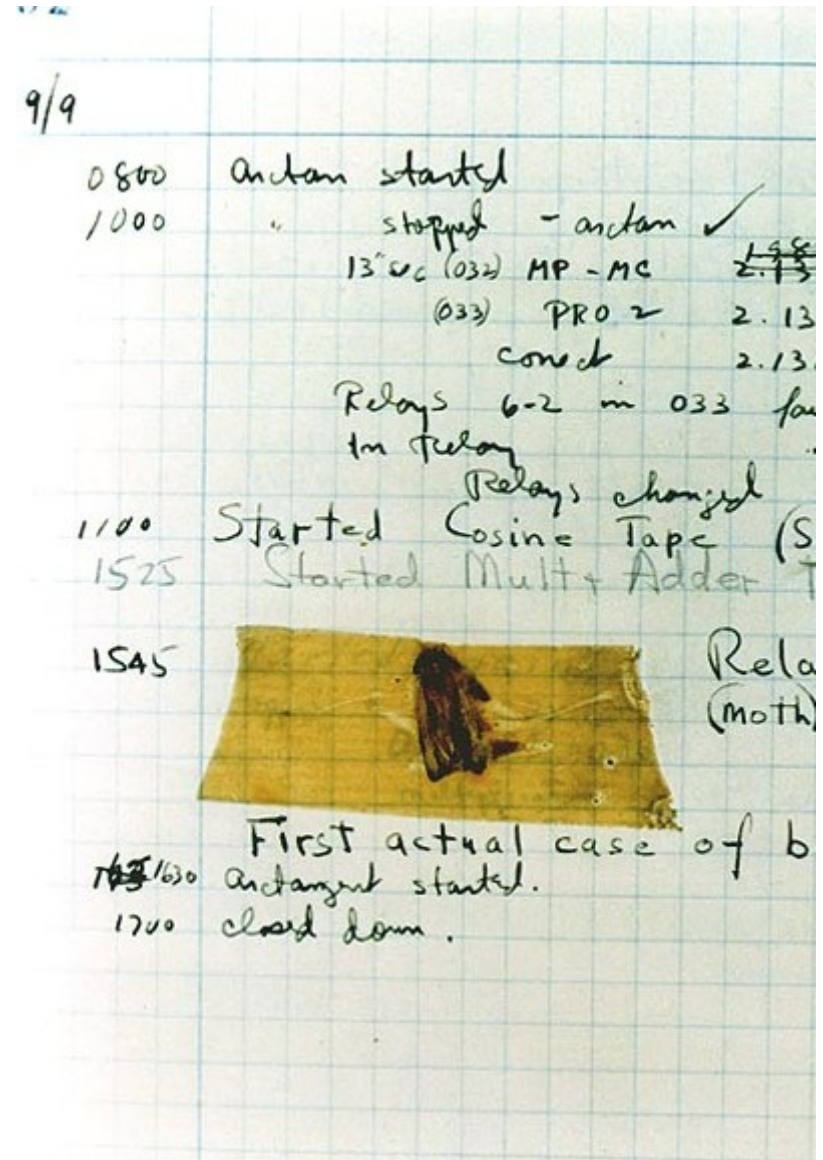 9/9
0800 arctan started
1000 " stopped - arctan ✓
13"uc (032) MP - MC 2.13
(033) PRO 2 2.13
conect 2.13.
Relays 6-2 in 033
In Relay
Relays changed
1100 Started Cosine Tape (S
1525 Started Mult + Adder T
1545 Rela
(moth)
First actual case of b
1630 arctangent started.
1700 closed down.